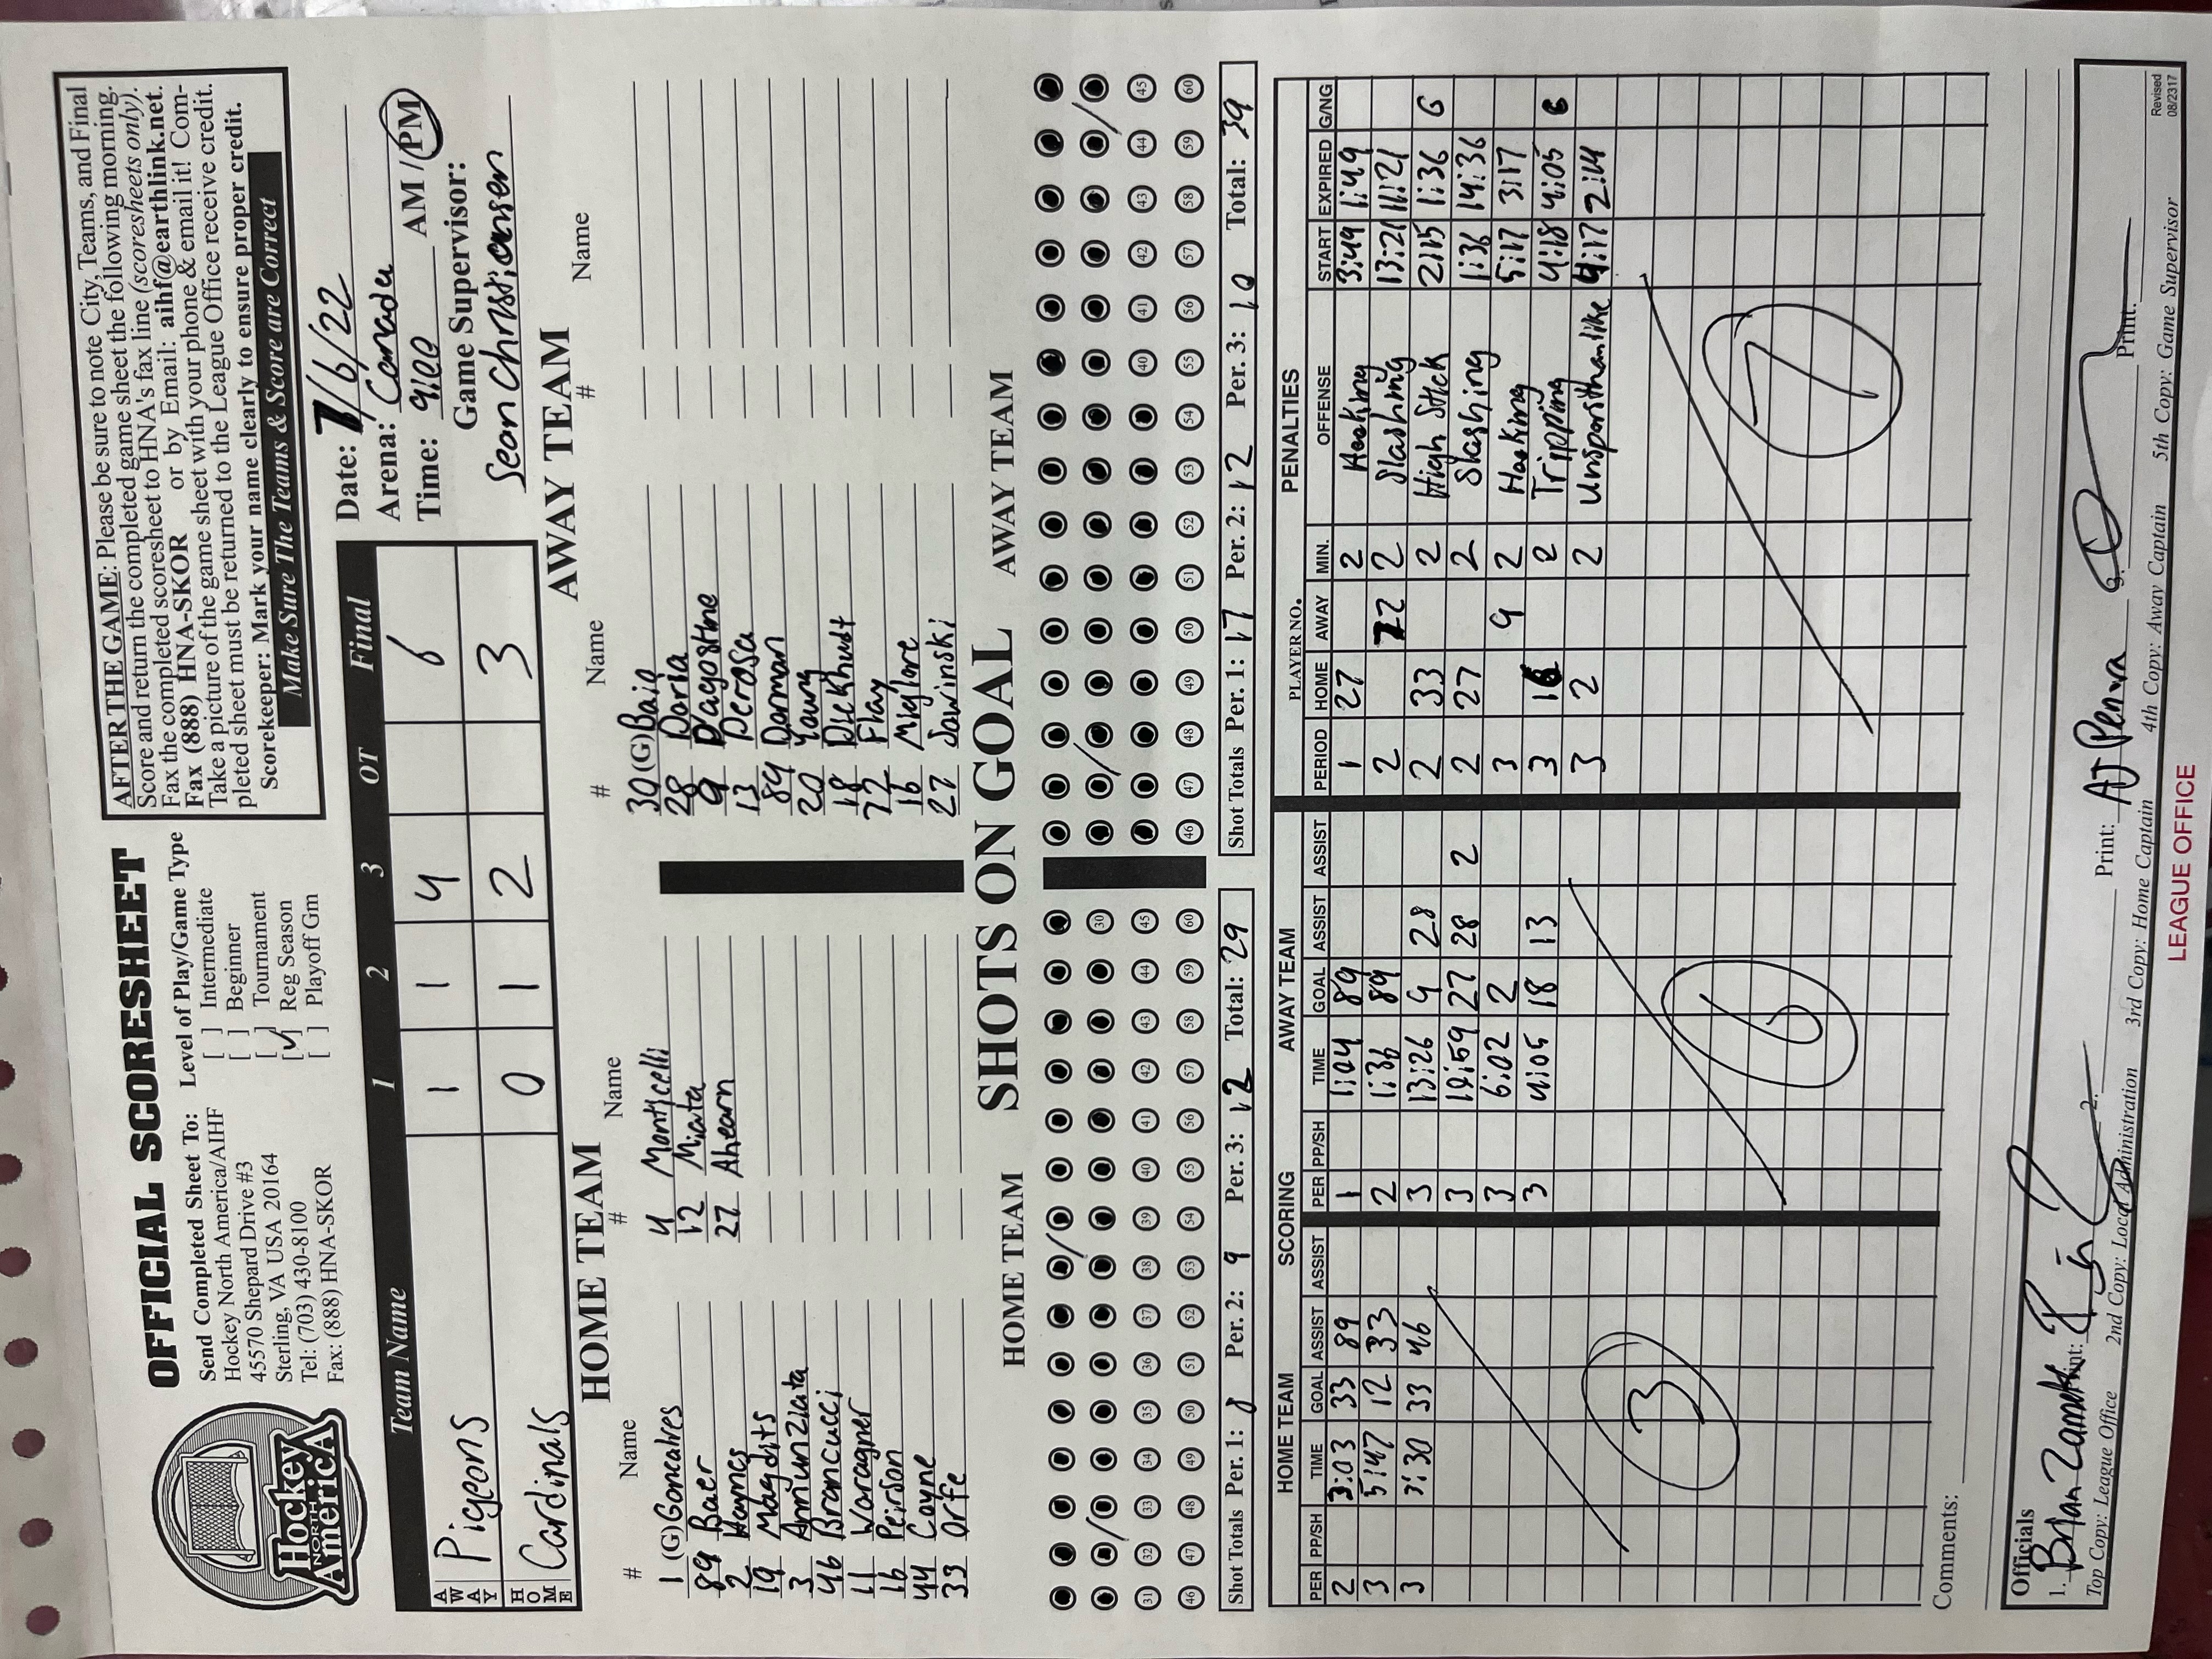 Hockey
NORTH
AmericA
OFFICIAL SCORESHEET
Send Completed Sheet To:
Hockey North America/AIHF
45570 Shepard Drive #3
Sterling, VA USA 20164
Tel: (703) 430-8100
Fax: (888) HNA-SKOR
Level of Play/Game Type
[ ] Intermediate
[ ] Beginner
[ ] Tournament
[✓] Reg Season
[ ] Playoff Gm
AFTER THE GAME: Please be sure to note City, Teams, and Final
Score and return the completed game sheet the following morning.
Fax the completed scoresheet to HNA's fax line (scoresheets only).
Fax (888) HNA-SKOR or by Email: aihf@earthlink.net.
Take a picture of the game sheet with your phone & email it! Com-
pleted sheet must be returned to the League Office receive credit.
Scorekeeper: Mark your name clearly to ensure proper credit.
Make Sure The Teams & Score are Correct
Team Name 1 2 3 OT Final
AWAY Pigeons 1 1 4 6
HOME Cardinals 0 1 2 3
Date: 7/6/22
Arena:
Time: 9:00 AM / PM
Game Supervisor:
Sean Christiansen
HOME TEAM
# Name # Name
1 (G) Goncalves 4 Monticelli
89 Baer 12 Micata
2 Haynes 27 Ahearn
19 Magdits
3 Annunziata
46 Brancucci
11 Waragner
16 Person
44 Coyne
33 Orfe
AWAY TEAM
# Name # Name
30 (G) Baio
28 Doria
9 D'agostine
13 Derosa
89 Dorman
20 Young
18 Dickhudt
72 Flay
16 Miglore
27 Sowinski
SHOTS ON GOAL
HOME TEAM
30
31 32 33 34 35 36 37 38 39 40 41 42 43 44 45
46 47 48 49 50 51 52 53 54 55 56 57 58 59 60
Shot Totals Per. 1: 8 Per. 2: 9 Per. 3: 12 Total: 29
AWAY TEAM
40 41 42 43 44 45
46 47 48 49 50 51 52 53 54 55 56 57 58 59 60
Shot Totals Per. 1: 17 Per. 2: 12 Per. 3: 10 Total: 39
SCORING
HOME TEAM
PER PP/SH TIME GOAL ASSIST ASSIST
2 3:03 33 89
3 5:47 12 33
3 3:30 33 46
3
AWAY TEAM
PER PP/SH TIME GOAL ASSIST ASSIST
1 1:04 89
2 1:36 89
3 13:26 9 28
3 10:59 27 28 2
3 6:02 2
3 4:05 18 13
6
PENALTIES
PLAYER NO.
PERIOD HOME AWAY MIN. OFFENSE START EXPIRED G/NG
1 27 2 Hooking 3:49 1:49
2 72 2 Slashing 13:21 11:21
2 33 2 High Stick 2:15 1:36 G
2 27 2 Slashing 1:36 14:36
3 9 2 Hooking 5:17 3:17
3 16 2 Tripping 4:18 4:05 G
3 2 2 Unsportsmanlike 4:17 2:14
7
Comments:
Officials
1. Brian Print: 2. Print: AJ Penna 3. Print:
Top Copy: League Office 2nd Copy: Local Administration 3rd Copy: Home Captain 4th Copy: Away Captain 5th Copy: Game Supervisor
Revised
08/2317
LEAGUE OFFICE